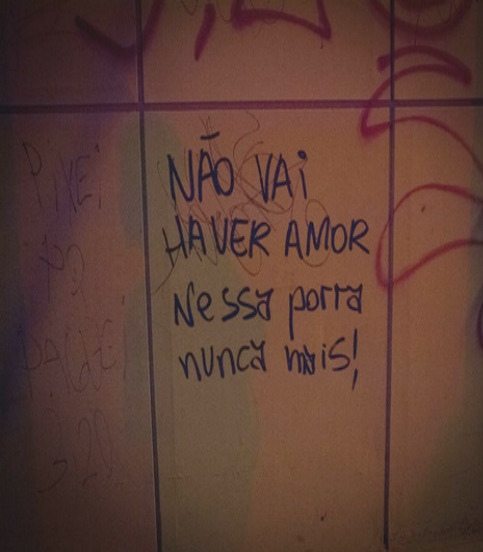 NÃO VAi
HAVER AMOR
Nessa porra
nunca mais!
PiXEi
PAGUEi
3.20